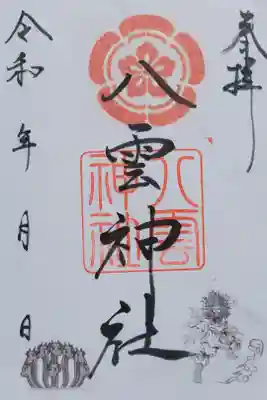 奉拝
八雲神社
八雲神社
令和 年 月 日